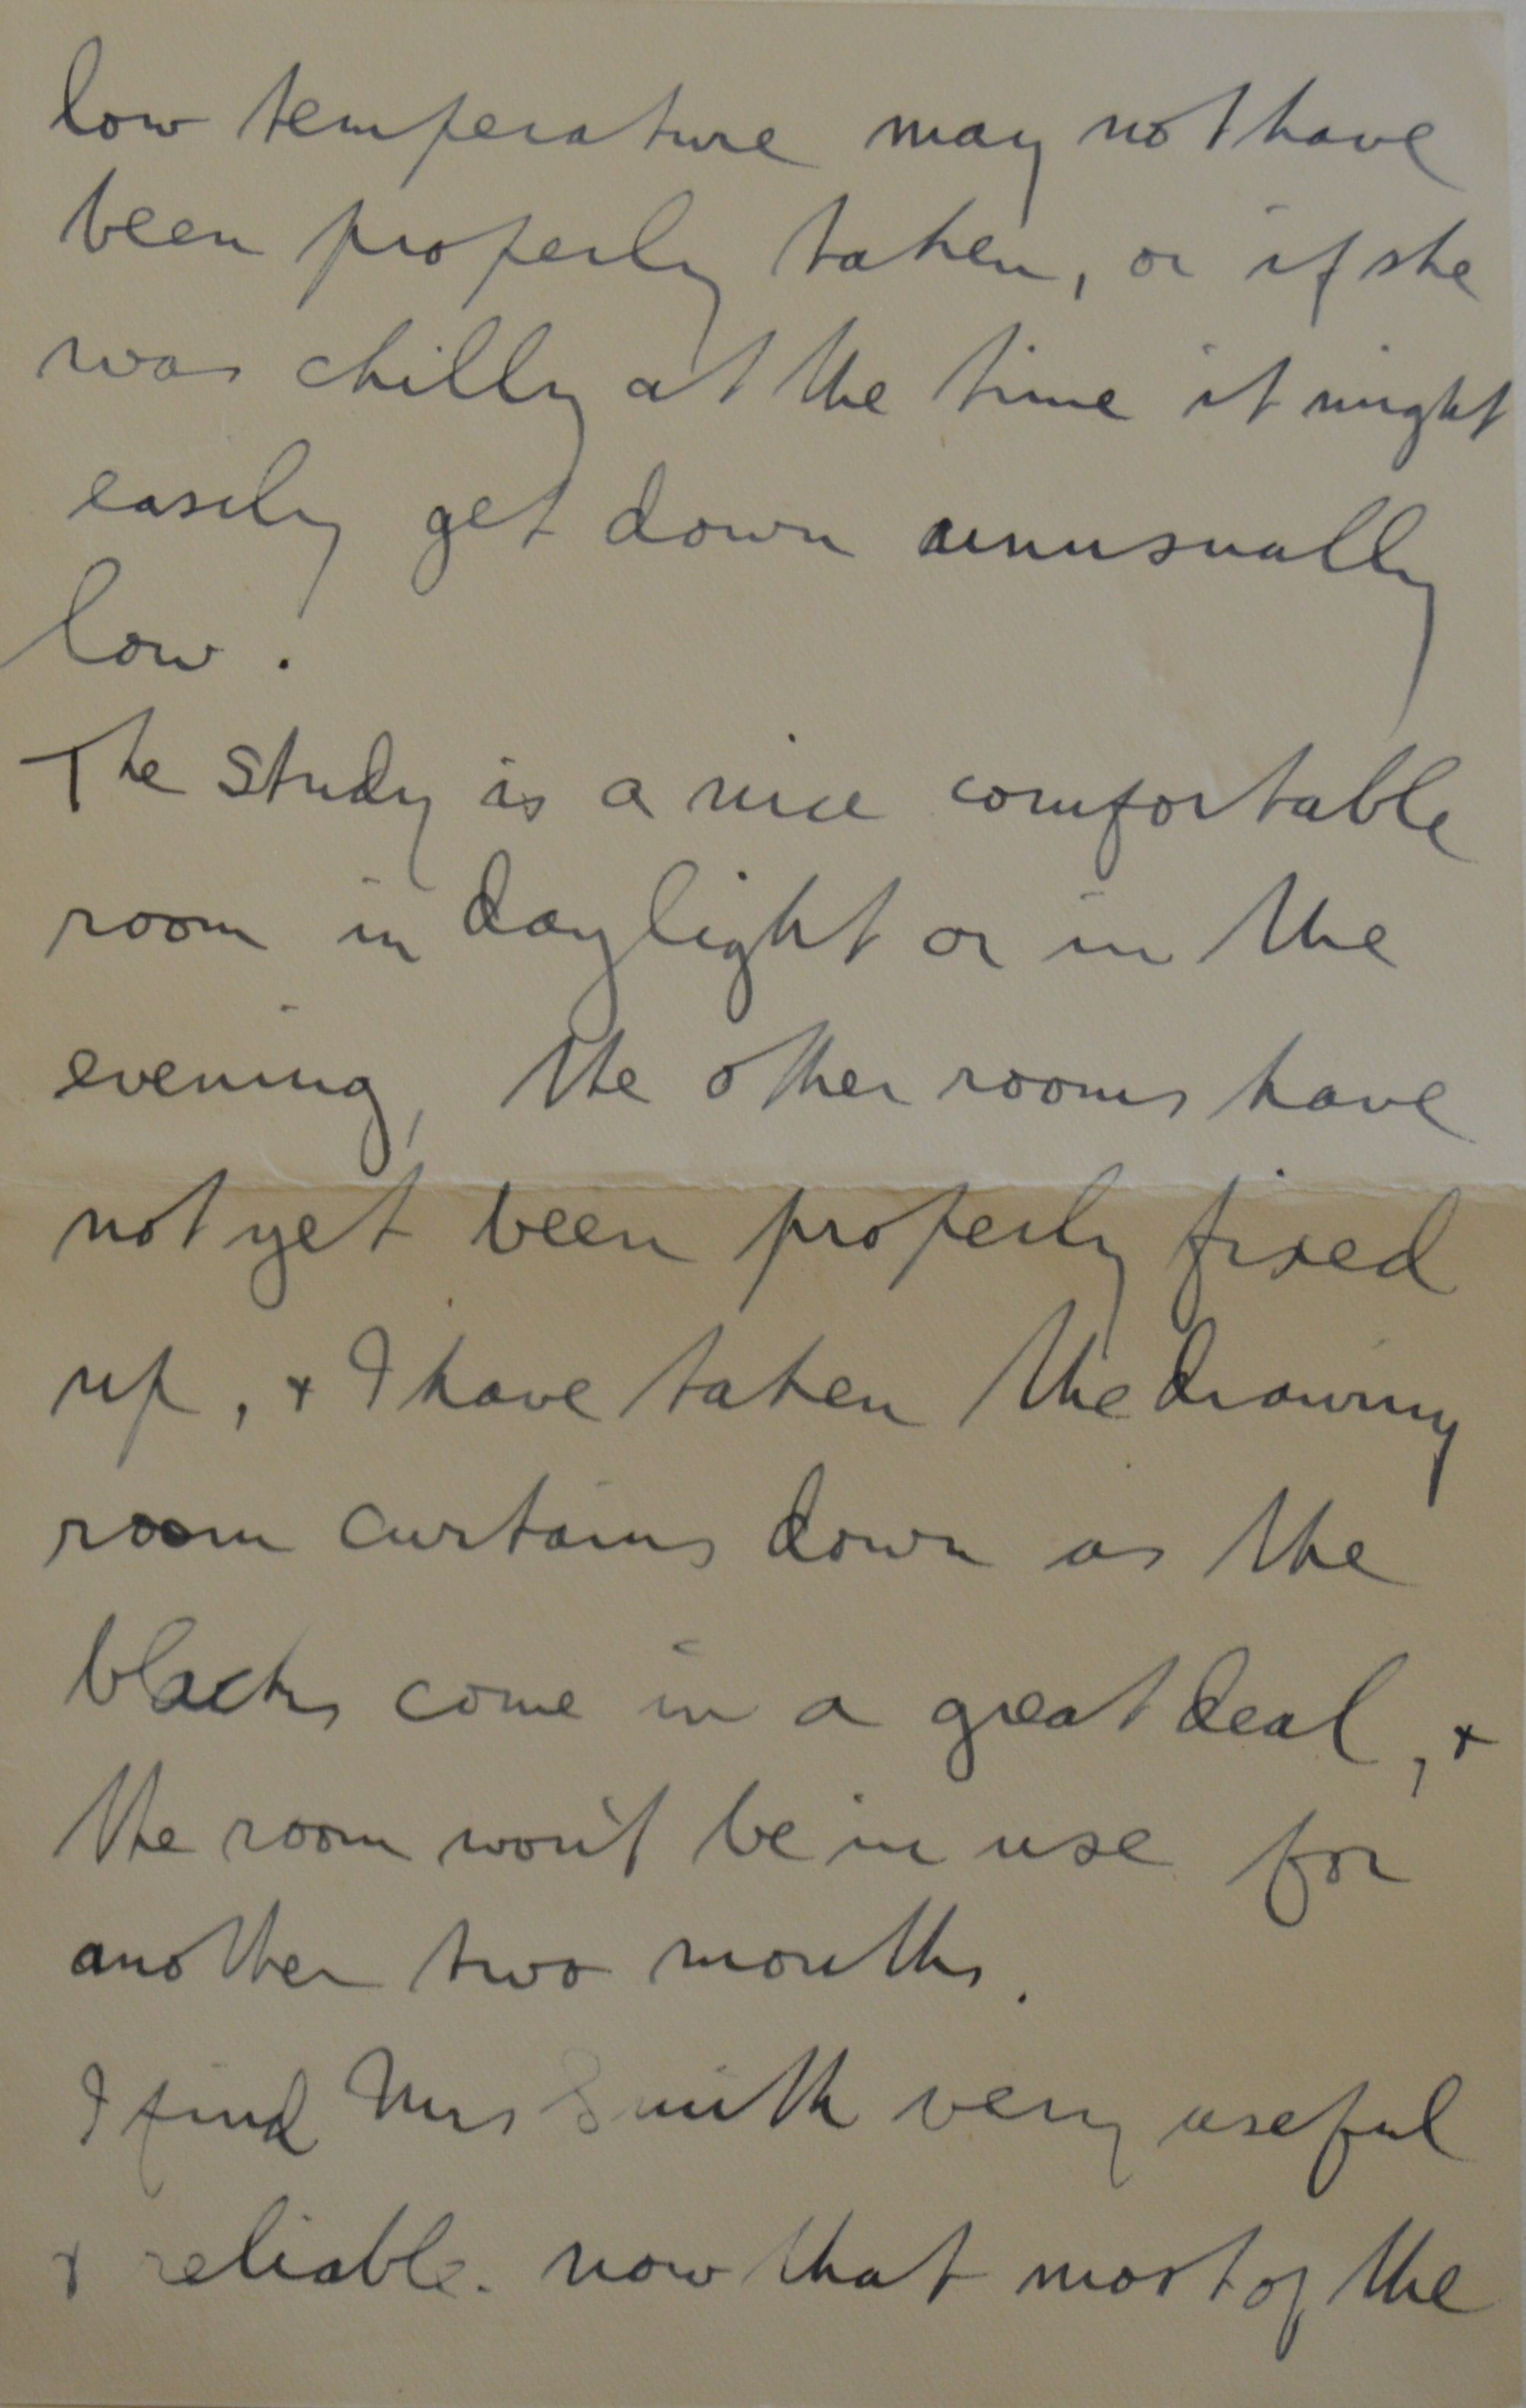 low temperature may not have
been properly taken, or if she
was chilly at the time it might
easily get down unusually
low.
The study is a nice comfortable
room in daylight or in the
evening, the other rooms have
not yet been properly fixed
up, & I have taken the drawing
room curtains down as the
blacks come in a great deal, &
the room won't be in use for
another two months.
I find Mrs Smith very useful
& reliable. now that most of the